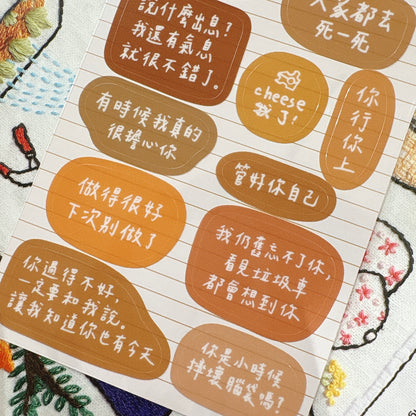 說什麼出息?
我還有氣息
就很不錯了。
大家都去
死一死
cheese
了!
你
行
你
上
有時候我真的
很擔心你
管好你自己
做得很好
下次別做了
我仍舊忘不了你,
看見垃圾車
都會想到你
你過得不好,
一定要和我說。
讓我知道你也有今天
你是小時候
摔壞腦袋嗎?